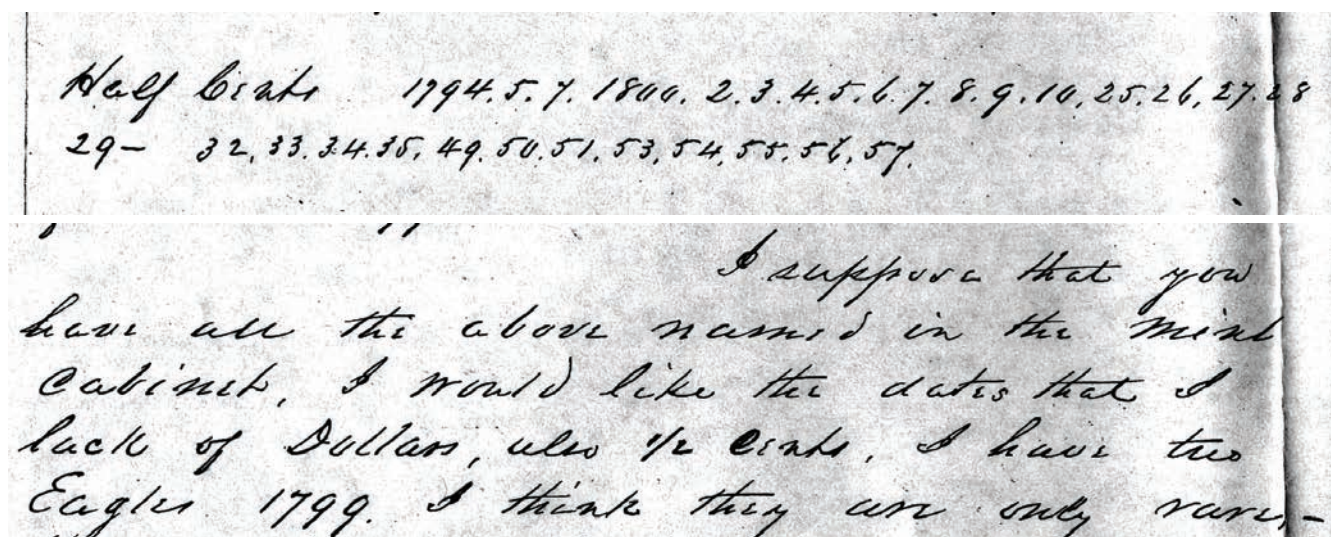 Half Cents 1794.5.7. 1800. 2.3.4.5.6.7.8.9.10.25.26,27.28
29- 32,33.34.35,49.50.51.53,54,55.56,57.
I suppose that you
have all the above named in the Mint
Cabinet, I would like the dates that I
lack of Dollars, also 1/2 Cents. I have two
Eagles 1799. I think they are only rare,-